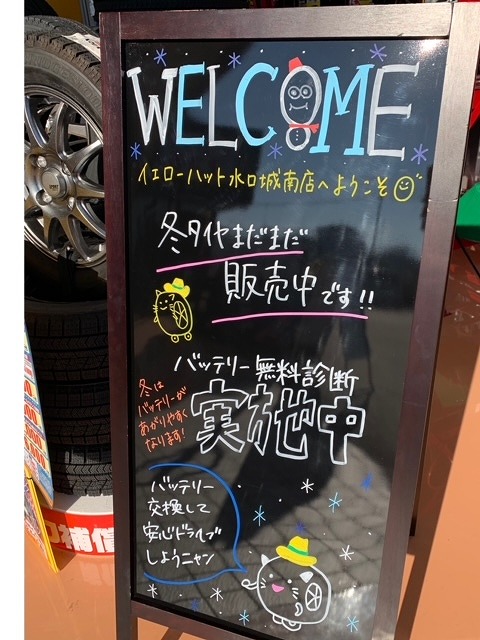 WELCOME
イエローハット水口城南店へようこそ
冬タイヤまだまだ
販売中です!!
バッテリー無料診断
実施中
冬は
バッテリーが
あがりやすく
なります!
バッテリー
交換して
安心ドライブ
しようニャン
補償